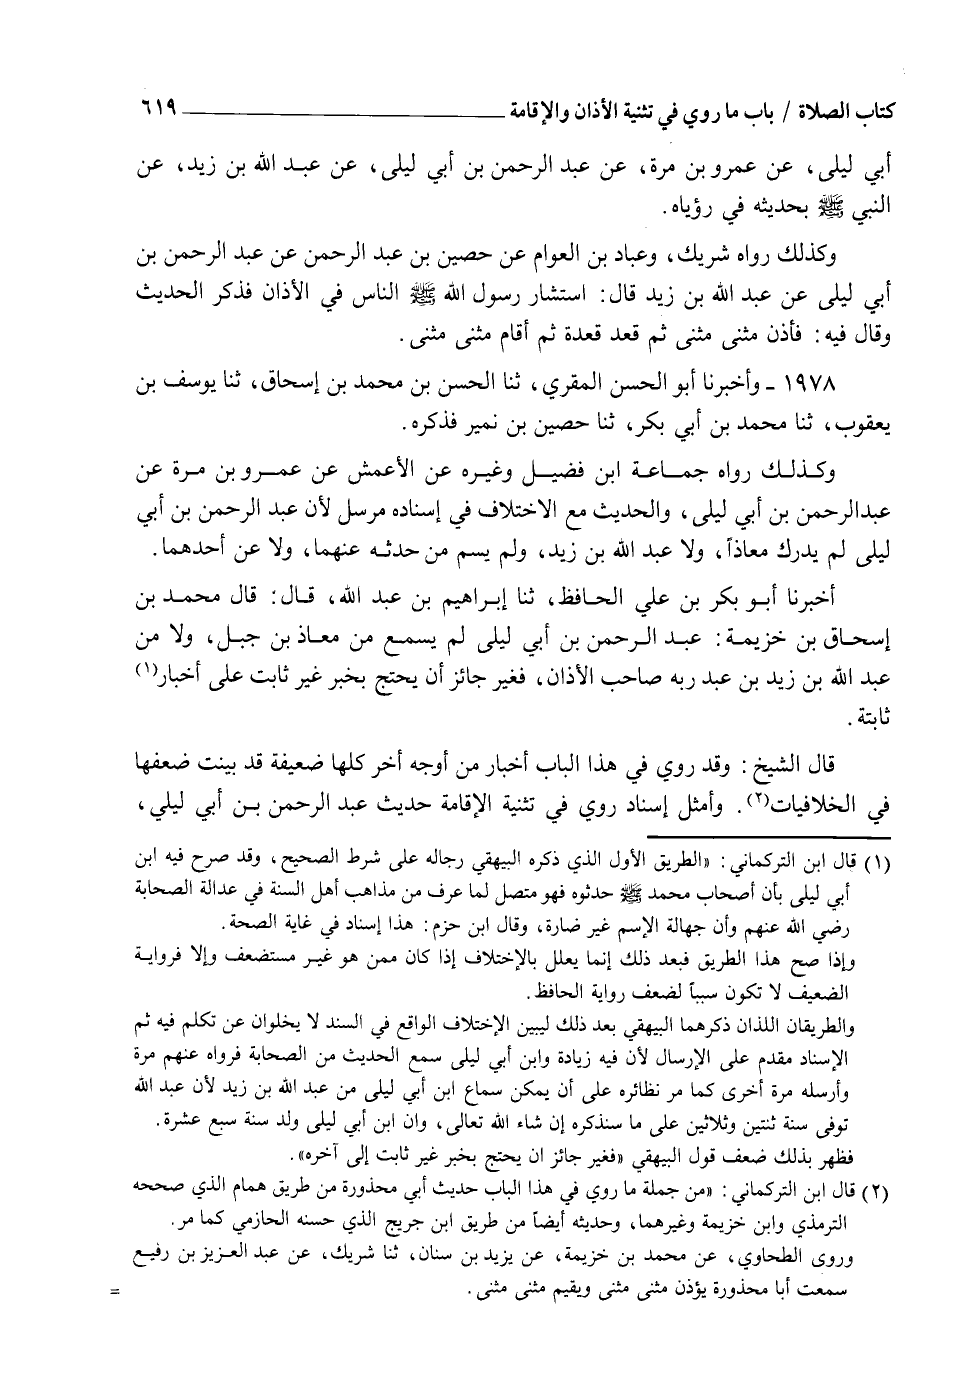 كتاب الصلاة / باب ما روي في تثنية الأذان والإقامة ـــــــ ٦١٩
أبي ليلى، عن عمرو بن مرة، عن عبد الرحمن بن أبي ليلى، عن عبد الله بن زيد، عن
النبي ﷺ بحديثه في رؤياه.
وكذلك رواه شريك، وعباد بن العوام عن حصين بن عبد الرحمن عن عبد الرحمن بن
أبي ليلى عن عبد الله بن زيد قال: استشار رسول الله ﷺ الناس في الأذان فذكر الحديث
وقال فيه: فأذن مثنى مثنى ثم قعد قعدة ثم أقام مثنى مثنى.
١٩٧٨ ـ وأخبرنا أبو الحسن المقري، ثنا الحسن بن محمد بن إسحاق، ثنا يوسف بن
يعقوب، ثنا محمد بن أبي بكر، ثنا حصين بن نمير فذكره.
وكذلك رواه جماعة ابن فضيل وغيره عن الأعمش عن عمرو بن مرة عن
عبدالرحمن بن أبي ليلى، والحديث مع الاختلاف في إسناده مرسل لأن عبد الرحمن بن أبي
ليلى لم يدرك معاذاً، ولا عبد الله بن زيد، ولم يسم من حدثه عنهما، ولا عن أحدهما.
أخبرنا أبو بكر بن علي الحافظ، ثنا إبراهيم بن عبد الله، قال: قال محمد بن
إسحاق بن خزيمة: عبد الرحمن بن أبي ليلى لم يسمع من معاذ بن جبل، ولا من
عبد الله بن زيد بن عبد ربه صاحب الأذان، فغير جائز أن يحتج بخبر غير ثابت على أخبار(١)
ثابتة.
قال الشيخ: وقد روي في هذا الباب أخبار من أوجه أخر كلها ضعيفة قد بينت ضعفها
في الخلافيات(٢). وأمثل إسناد روي في تثنية الإقامة حديث عبد الرحمن بن أبي ليلي،
(١) قال ابن التركماني: «الطريق الأول الذي ذكره البيهقي رجاله على شرط الصحيح، وقد صرح فيه ابن
أبي ليلى بأن أصحاب محمد ﷺ حدثوه فهو متصل لما عرف من مذاهب أهل السنة في عدالة الصحابة
رضي الله عنهم وأن جهالة الإسم غير ضارة، وقال ابن حزم: هذا إسناد في غاية الصحة.
وإذا صح هذا الطريق فبعد ذلك إنما يعلل بالإختلاف إذا كان ممن هو غير مستضعف وإلا فرواية
الضعيف لا تكون سبباً لضعف رواية الحافظ.
والطريقان اللذان ذكرهما البيهقي بعد ذلك ليبين الإختلاف الواقع في السند لا يخلوان عن تكلم فيه ثم
الإسناد مقدم على الإرسال لأن فيه زيادة وابن أبي ليلى سمع الحديث من الصحابة فرواه عنهم مرة
وأرسله مرة أخرى كما مر نظائره على أن يمكن سماع ابن أبي ليلى من عبد الله بن زيد لأن عبد الله
توفى سنة ثنتين وثلاثين على ما سنذكره إن شاء الله تعالى، وان ابن أبي ليلى ولد سنة سبع عشرة.
فظهر بذلك ضعف قول البيهقي «فغير جائز ان يحتج بخبر غير ثابت إلى آخره».
(٢) قال ابن التركماني: «من جملة ما روي في هذا الباب حديث أبي محذورة من طريق همام الذي صححه
الترمذي وابن خزيمة وغيرهما، وحديثه أيضاً من طريق ابن جريج الذي حسنه الحازمي كما مر.
وروى الطحاوي، عن محمد بن خزيمة، عن يزيد بن سنان، ثنا شريك، عن عبد العزيز بن رفيع
سمعت أبا محذورة يؤذن مثنى مثنى ويقيم مثنى مثنى.
=